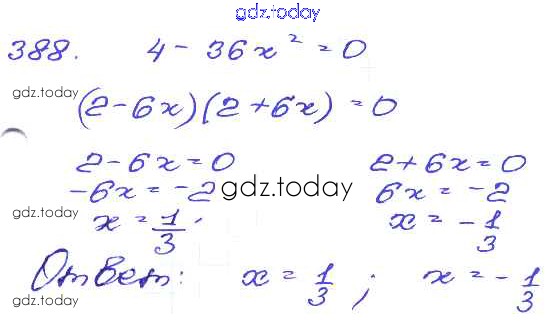 gdz.today
388. 4 - 36x² = 0
gdz.today
(2-6x)(2+6x) = 0
2-6x=0 2+6x=0
-6x=-2 gdz.today 6x=-2
gdz.today
x = 1/3, x = -1/3
Ответ: x = 1/3; x = -1/3
gdz.today